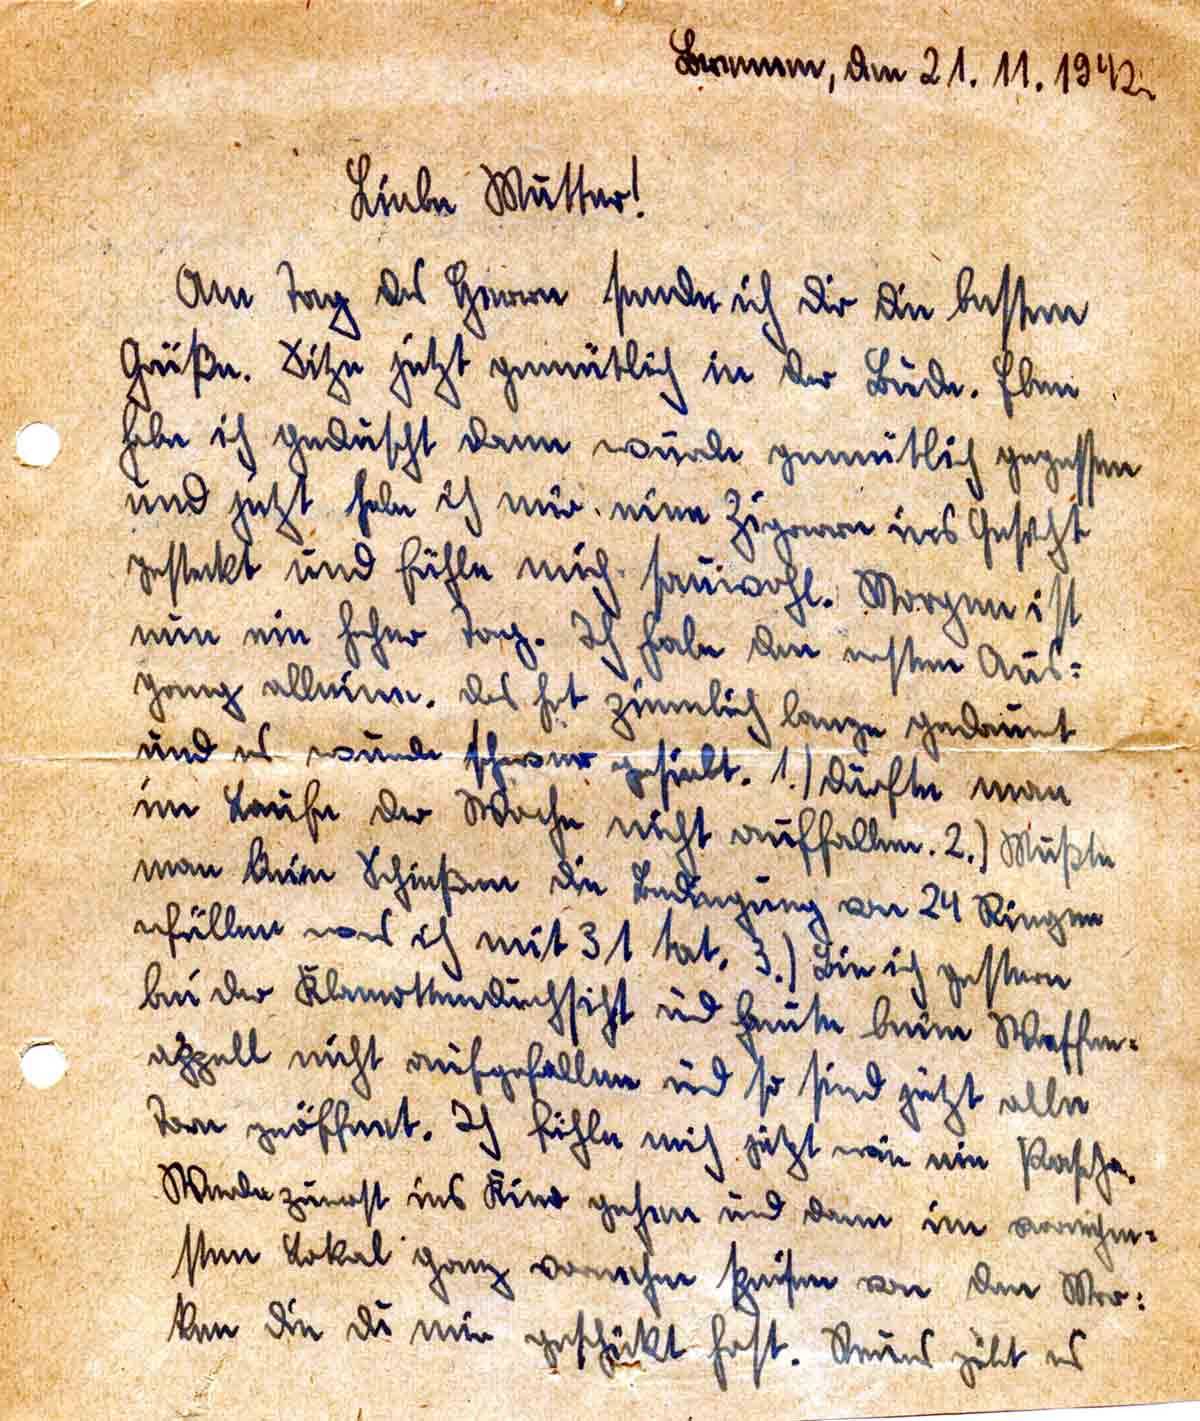 Bremen, den 21. 11. 1942.
Liebe Mutter!
Am Tag des Herrn sende ich dir die besten
Grüße. Sitze jetzt gemütlich in der Bude. Eben
habe ich geduscht dann wurde gemütlich gegessen
und jetzt habe ich mir eine Zigarre ins Gesicht
gesteckt und fühle mich sauwohl. Morgen ist
nun ein hoher Tag. Ich habe den ersten Aus=
gang alleine. Das hat ziemlich lange gedauert
und es wurde schwer gesiebt. 1.) Durfte man
im Laufe der Woche nicht auffallen. 2.) Mußte
man beim Schießen die Bedingung von 24 Ringen
erfüllen was ich mit 31 tat. 3.) Bin ich gestern
bei der Klamottendurchsicht und heute beim Waffen=
appell nicht aufgefallen und so sind jetzt alle
Tore geöffnet. Ich fühle mich jetzt wie ein Pascha.
Werde zuerst ins Kino gehen und dann im vornehm=
sten Lokal ganz vornehm speisen von den Mar=
ken die du mir geschickt hast. Neues gibt es